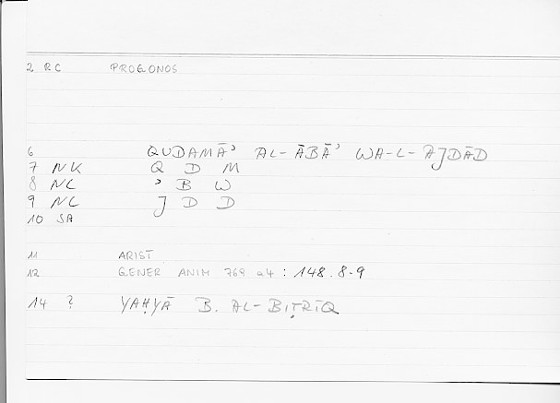 2 RC PROGONOS
6 QUDAMĀʾ AL-ĀBĀʾ WA-L-AJDĀD
7 NK Q D M
8 NC ʾ B W
9 NC J D D
10 SA
11 ARIST
12 GENER ANIM 769 a4 : 148.8-9
14 ? YAḤYĀ B. AL-BIṬRĪQ